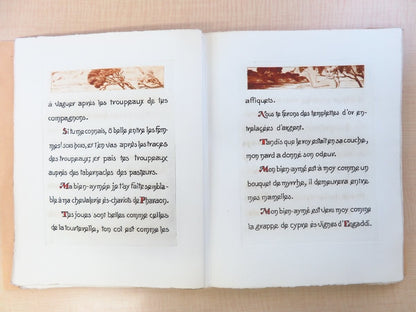 à vaguer après les troupeaux de tes
compagnons.
Si tu me connais, ô belle entre les fem-
mes! sors hors, et t'en vas après les traces
des troupeaux; et pais tes troupeaux
auprès des tabernacles des pasteurs.
Ma bien-aymée je t'ay fait sembla-
ble à ma chevalerie ès-chariots de Pharaon.
Tes joues sont belles comme celles
de la tourterelle, ton col est comme les
affiquets.
Nous te ferons des templettes d'or en-
trelacées d'argent.
Tandis que le roy estait en sa couche,
mon nard a donné son odeur.
Mon bien-aymé est à moy comme un
bouquet de myrrhe, il demeurera entre
mes mamelles.
Mon bien-aymé est vers moy comme
la grappe de cypre ès vignes d'Engaddi.